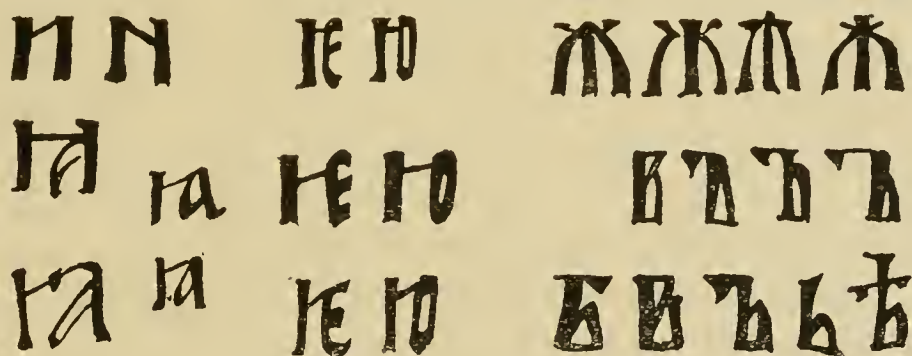 И N Ѥ Ю Ж Ж Ѫ Ѫ
Ꙗ Ꙗ Ѥ Ю В Ъ Ъ Ъ
Ꙗ Ꙗ Ѥ Ю Б В Ъ Ь Ѣ